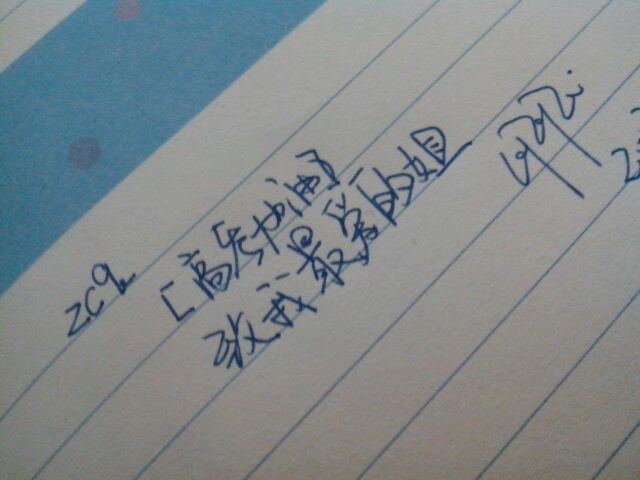 zcq
[高考加油]
致我最爱的姐